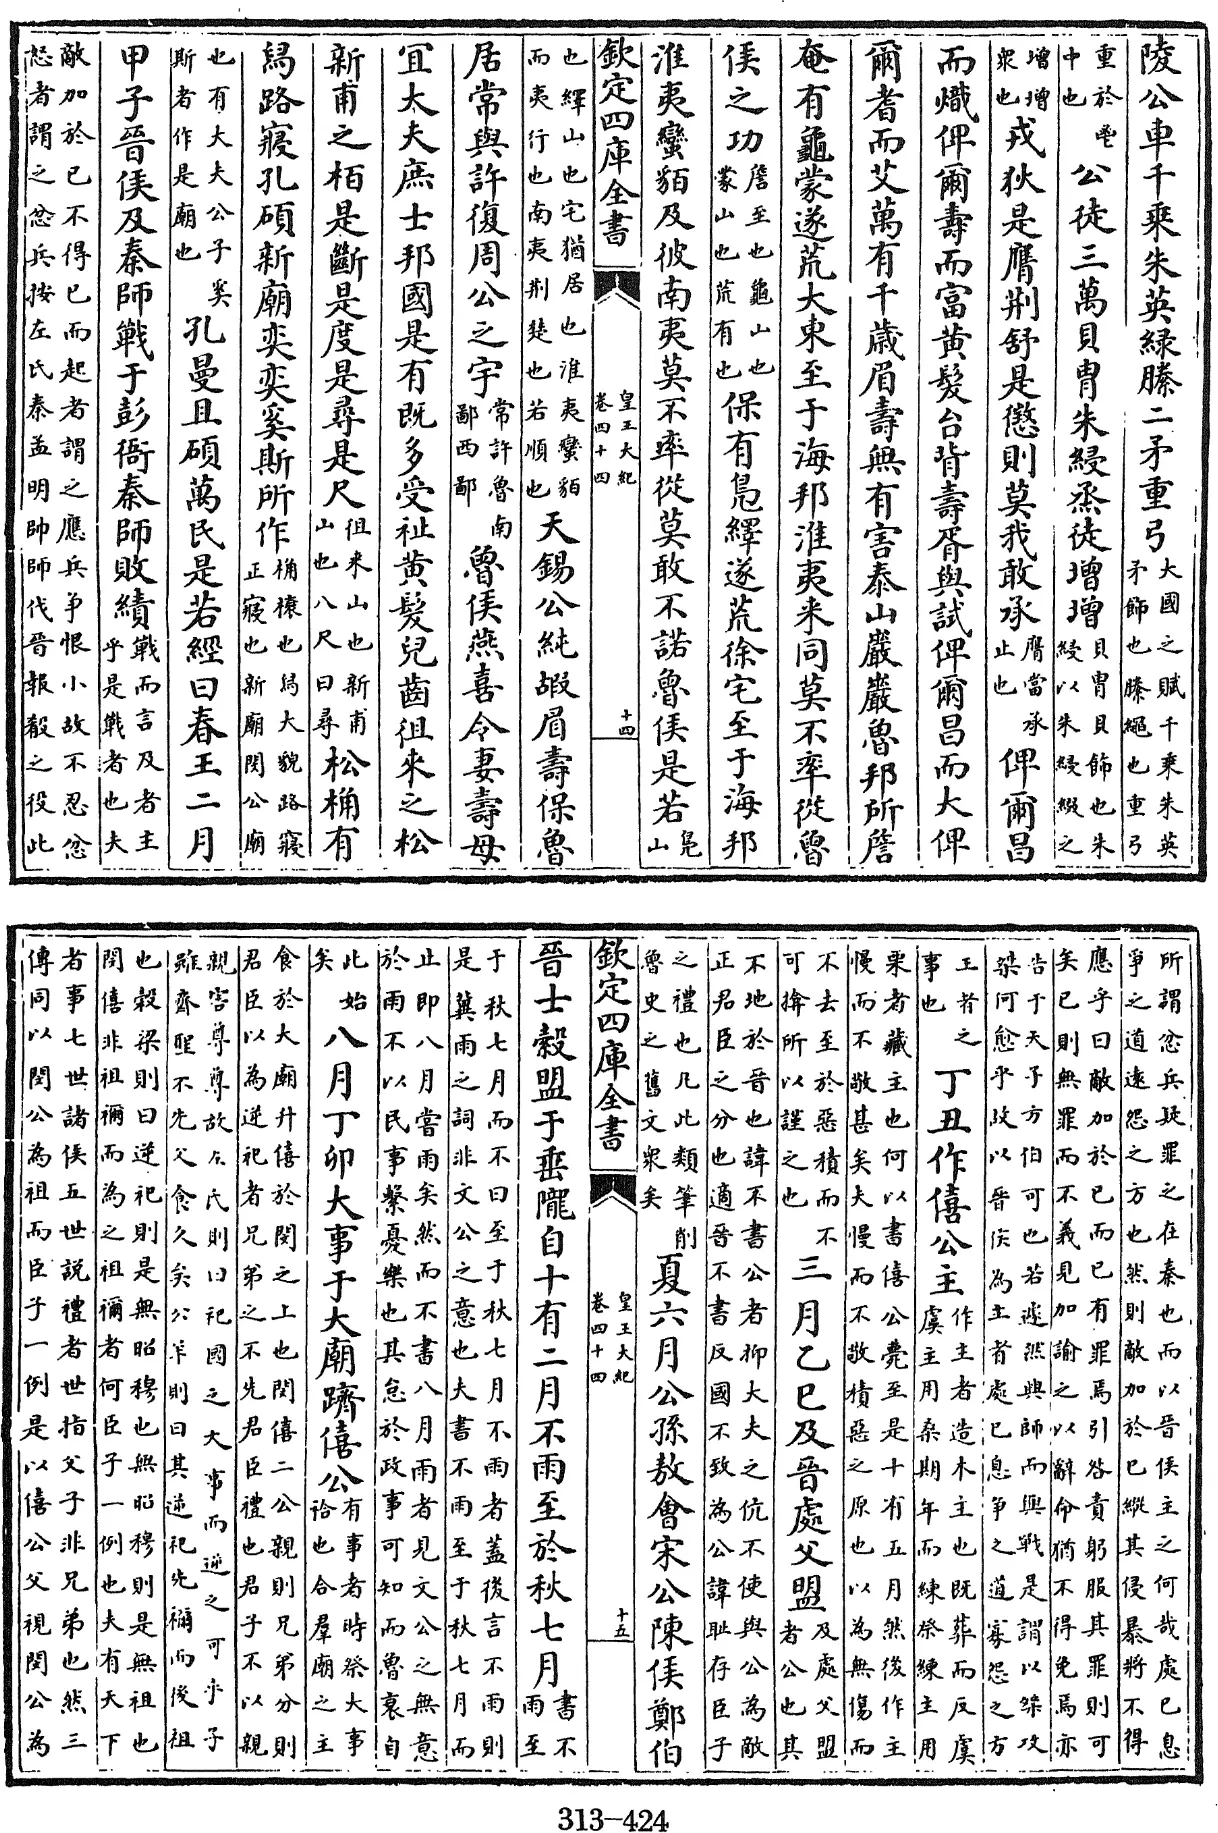 陵公車千乘朱英綠縢二矛重弓大國之賦千乘朱英矛飾也縢繩也重弓
重於鬯中也公徒三萬貝冑朱綅烝徒增增貝冑貝飾也朱綅以朱綅綴之
增增衆也戎狄是膺荆舒是懲則莫我敢承膺當承止也俾爾昌
而熾俾爾壽而富黄髮台背壽胥與試俾爾昌而大俾
爾耆而艾萬有千歲眉壽無有害泰山巖巖魯邦所詹
奄有龜蒙遂荒大東至于海邦淮夷來同莫不率從魯
侯之功詹至也龜山也蒙山也荒有也保有鳧繹遂荒徐宅至于海邦
淮夷蠻貊及彼南夷莫不率從莫敢不諾魯侯是若鳧山
欽定四庫全書 皇王大紀 卷四十四 十四
也繹山也宅猶居也淮夷蠻貊而夷行也南夷荆楚也若順也天錫公純嘏眉壽保魯
居常與許復周公之宇常許魯南鄙西鄙魯侯燕喜令妻壽母
宜大夫庶士邦國是有既多受祉黄髮兒齒徂來之松
新甫之栢是斷是度是尋是尺徂来山也新甫山也八尺曰尋松桷有
舄路寢孔碩新廟奕奕奚斯所作桷榱也舄大貌路寢正寢也新廟閔公廟
也有大夫公子奚斯者作是廟也孔曼且碩萬民是若經曰春王二月
甲子晉侯及秦師戰于彭衙秦師敗績戰而言及者主乎是戰者也夫
敵加於已不得已而起者謂之應兵争恨小故不忍忿怒者謂之忿兵按左氏秦孟明帥師伐晉報殽之役此
所謂忿兵疑罪之在秦也而以晉侯主之何哉處已息爭之道遠怨之方也然則敵加於已縱其侵暴將不得
應乎曰敵加於已而已有罪焉引咎責躬服其罪則可矣已則無罪而不義見加諭之以辭命猶不得免焉亦
告于天子方伯可也若遽然興師而與戰是謂以桀攻桀何愈乎故以晉侯為主者處已息争之道寡怨之方
王者之事也丁丑作僖公主作主者造木主也既葬而反虞虞主用桑期年而練祭練主用
栗者藏主也何以書僖公薨至是十有五月然後作主慢而不敬甚矣夫慢而不敬積惡之原也以為無傷而
不去至於惡積而不可揜所以謹之也三月乙巳及晉處父盟及處父盟者公也其
不地於晉也諱不書公者抑大夫之伉不使與公為敵正君臣之分也適晉不書反國不致為公諱耻存臣子
之禮也凡此類筆削魯史之舊文衆矣夏六月公孫敖會宋公陳侯鄭伯
欽定四庫全書 皇王大紀 卷四十四 十五
晉士縠盟于垂隴自十有二月不雨至於秋七月書不雨至
于秋七月而不曰至于秋七月不雨者蓋後言不雨則是冀雨之詞非文公之意也夫書不雨至于秋七月而
止即八月嘗雨矣然而不書八月雨者見文公之無意於雨不以民事繫憂樂也其怠於政事可知而魯衰自
此始矣八月丁卯大事于大廟躋僖公有事者時祭大事祫也合羣廟之主
食於大廟升僖於閔之上也閔僖二公親則兄弟分則君臣以為逆祀者兄弟之不先君臣禮也君子不以親
親害尊尊故左氏則曰祀國之大事而逆之可乎子雖齊聖不先父食久矣公羊則曰其逆祀先禰而後祖
也穀梁則曰逆祀則是無昭穆也無昭穆則是無祖也閔僖非祖禰而為之祖禰者何臣子一例也夫有天下
者事七世諸侯五世説禮者世指父子非兄弟也然三傳同以閔公為祖而臣子一例是以僖公父視閔公為
313-424